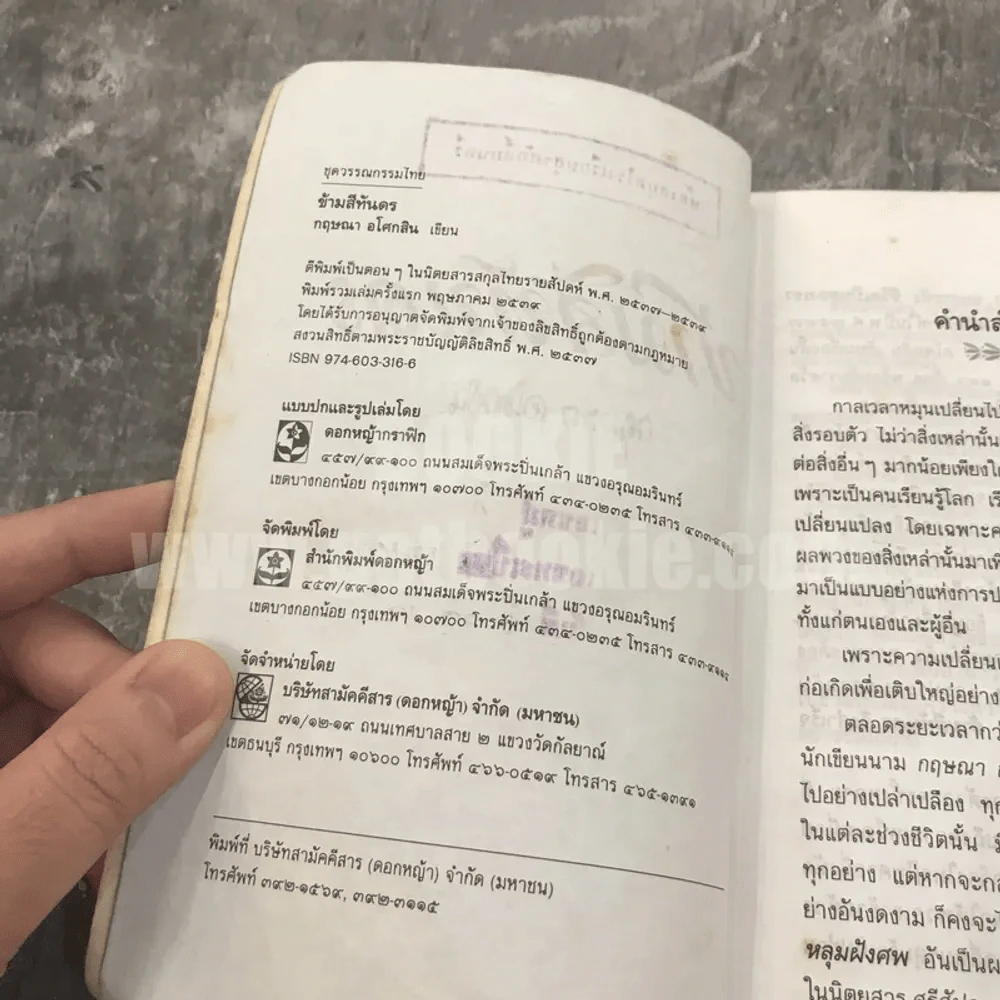 ชุดวรรณกรรมไทย
ข้ามสีทันดร
กฤษณา อโศกสิน เขียน
ตีพิมพ์เป็นตอน ๆ ในนิตยสารสกุลไทยรายสัปดาห์ พ.ศ. ๒๕๓๗–๒๕๓๙
พิมพ์รวมเล่มครั้งแรก พฤษภาคม ๒๕๓๙
โดยได้รับการอนุญาตจัดพิมพ์จากเจ้าของลิขสิทธิ์ถูกต้องตามกฎหมาย
สงวนสิทธิ์ตามพระราชบัญญัติลิขสิทธิ์ พ.ศ. ๒๕๓๗
ISBN 974-603-316-6
แบบปกและรูปเล่มโดย
ดอกหญ้ากราฟิก
๔๕๗/๙๙-๑๐๐ ถนนสมเด็จพระปิ่นเกล้า แขวงอรุณอมรินทร์
เขตบางกอกน้อย กรุงเทพฯ ๑๐๗๐๐ โทรศัพท์ ๔๓๔-๐๒๓๕ โทรสาร
จัดพิมพ์โดย
สำนักพิมพ์ดอกหญ้า
๔๕๗/๙๙-๑๐๐ ถนนสมเด็จพระปิ่นเกล้า แขวงอรุณอมรินทร์
เขตบางกอกน้อย กรุงเทพฯ ๑๐๗๐๐ โทรศัพท์ ๔๓๔-๐๒๓๕ โทรสาร
จัดจำหน่ายโดย
บริษัทสามัคคีสาร (ดอกหญ้า) จำกัด (มหาชน)
๗๑/๑๒-๑๙ ถนนเทศบาลสาย ๒ แขวงวัดกัลยาณ์
เขตธนบุรี กรุงเทพฯ ๑๐๖๐๐ โทรศัพท์ ๔๖๖-๐๕๑๙ โทรสาร ๔๖๕-๑๓๙๑
พิมพ์ที่ บริษัทสามัคคีสาร (ดอกหญ้า) จำกัด (มหาชน)
โทรศัพท์ ๓๙๒-๑๕๖๙, ๓๙๒-๓๑๑๕
คำนำสำ
กาลเวลาหมุนเปลี่ยนไป
สิ่งรอบตัว ไม่ว่าสิ่งเหล่านั้น
ต่อสิ่งอื่น ๆ มากน้อยเพียงใ
เพราะเป็นคนเรียนรู้โลก
เปลี่ยนแปลง โดยเฉพาะ
ผลพวงของสิ่งเหล่านั้นมา
มาเป็นแบบอย่างแห่งการ
ทั้งแก่ตนเองและผู้อื่น
เพราะความเปลี่ยน
ก่อเกิดเพื่อเติบใหญ่อย่าง
ตลอดระยะเวลา
นักเขียนนาม กฤษณา
ไปอย่างเปล่าเปลือง
ในแต่ละช่วงชีวิตนั้น
ทุกอย่าง แต่หากจะ
ย่างอันงดงาม ก็คงจะ
หลุมฝังศพ อันเป็น
ในนิตยสาร